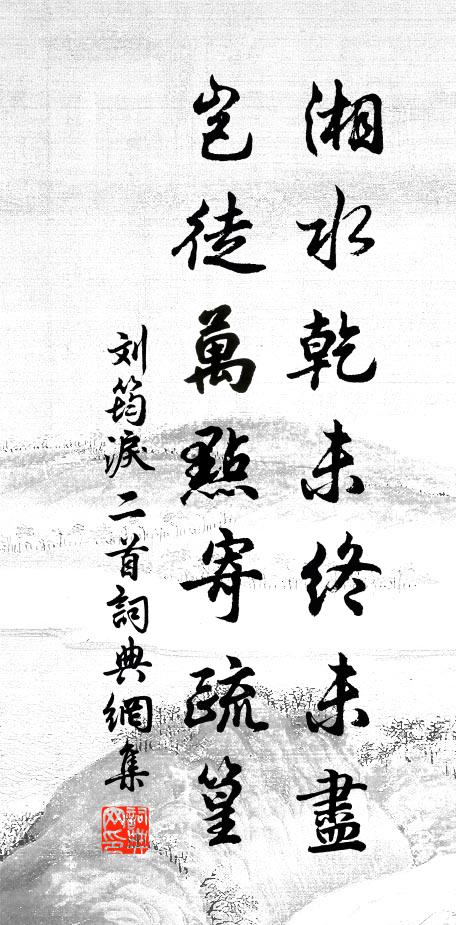 湘水乾未終未盡
豈徒萬點寄疏篁
刘筠淚二首詞典網集